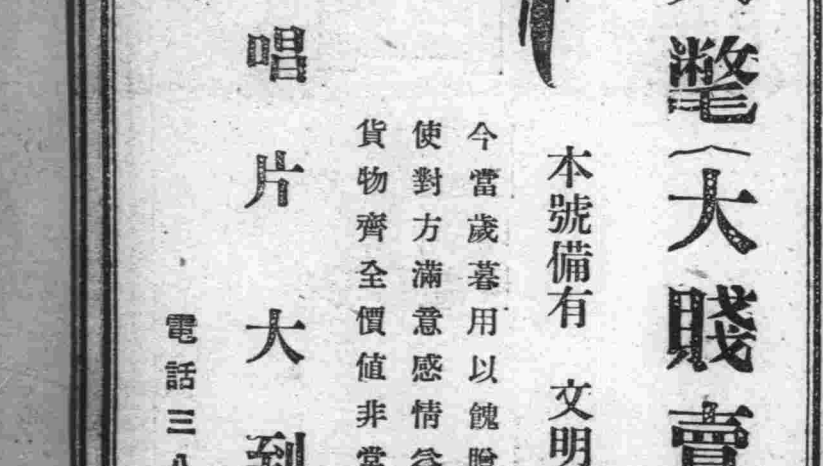 氅（大賤賣
本號備有 文明
今當歲暮用以餽贈
使對方滿意感情益
貨物齊全價值非常
唱片大到
電話三八